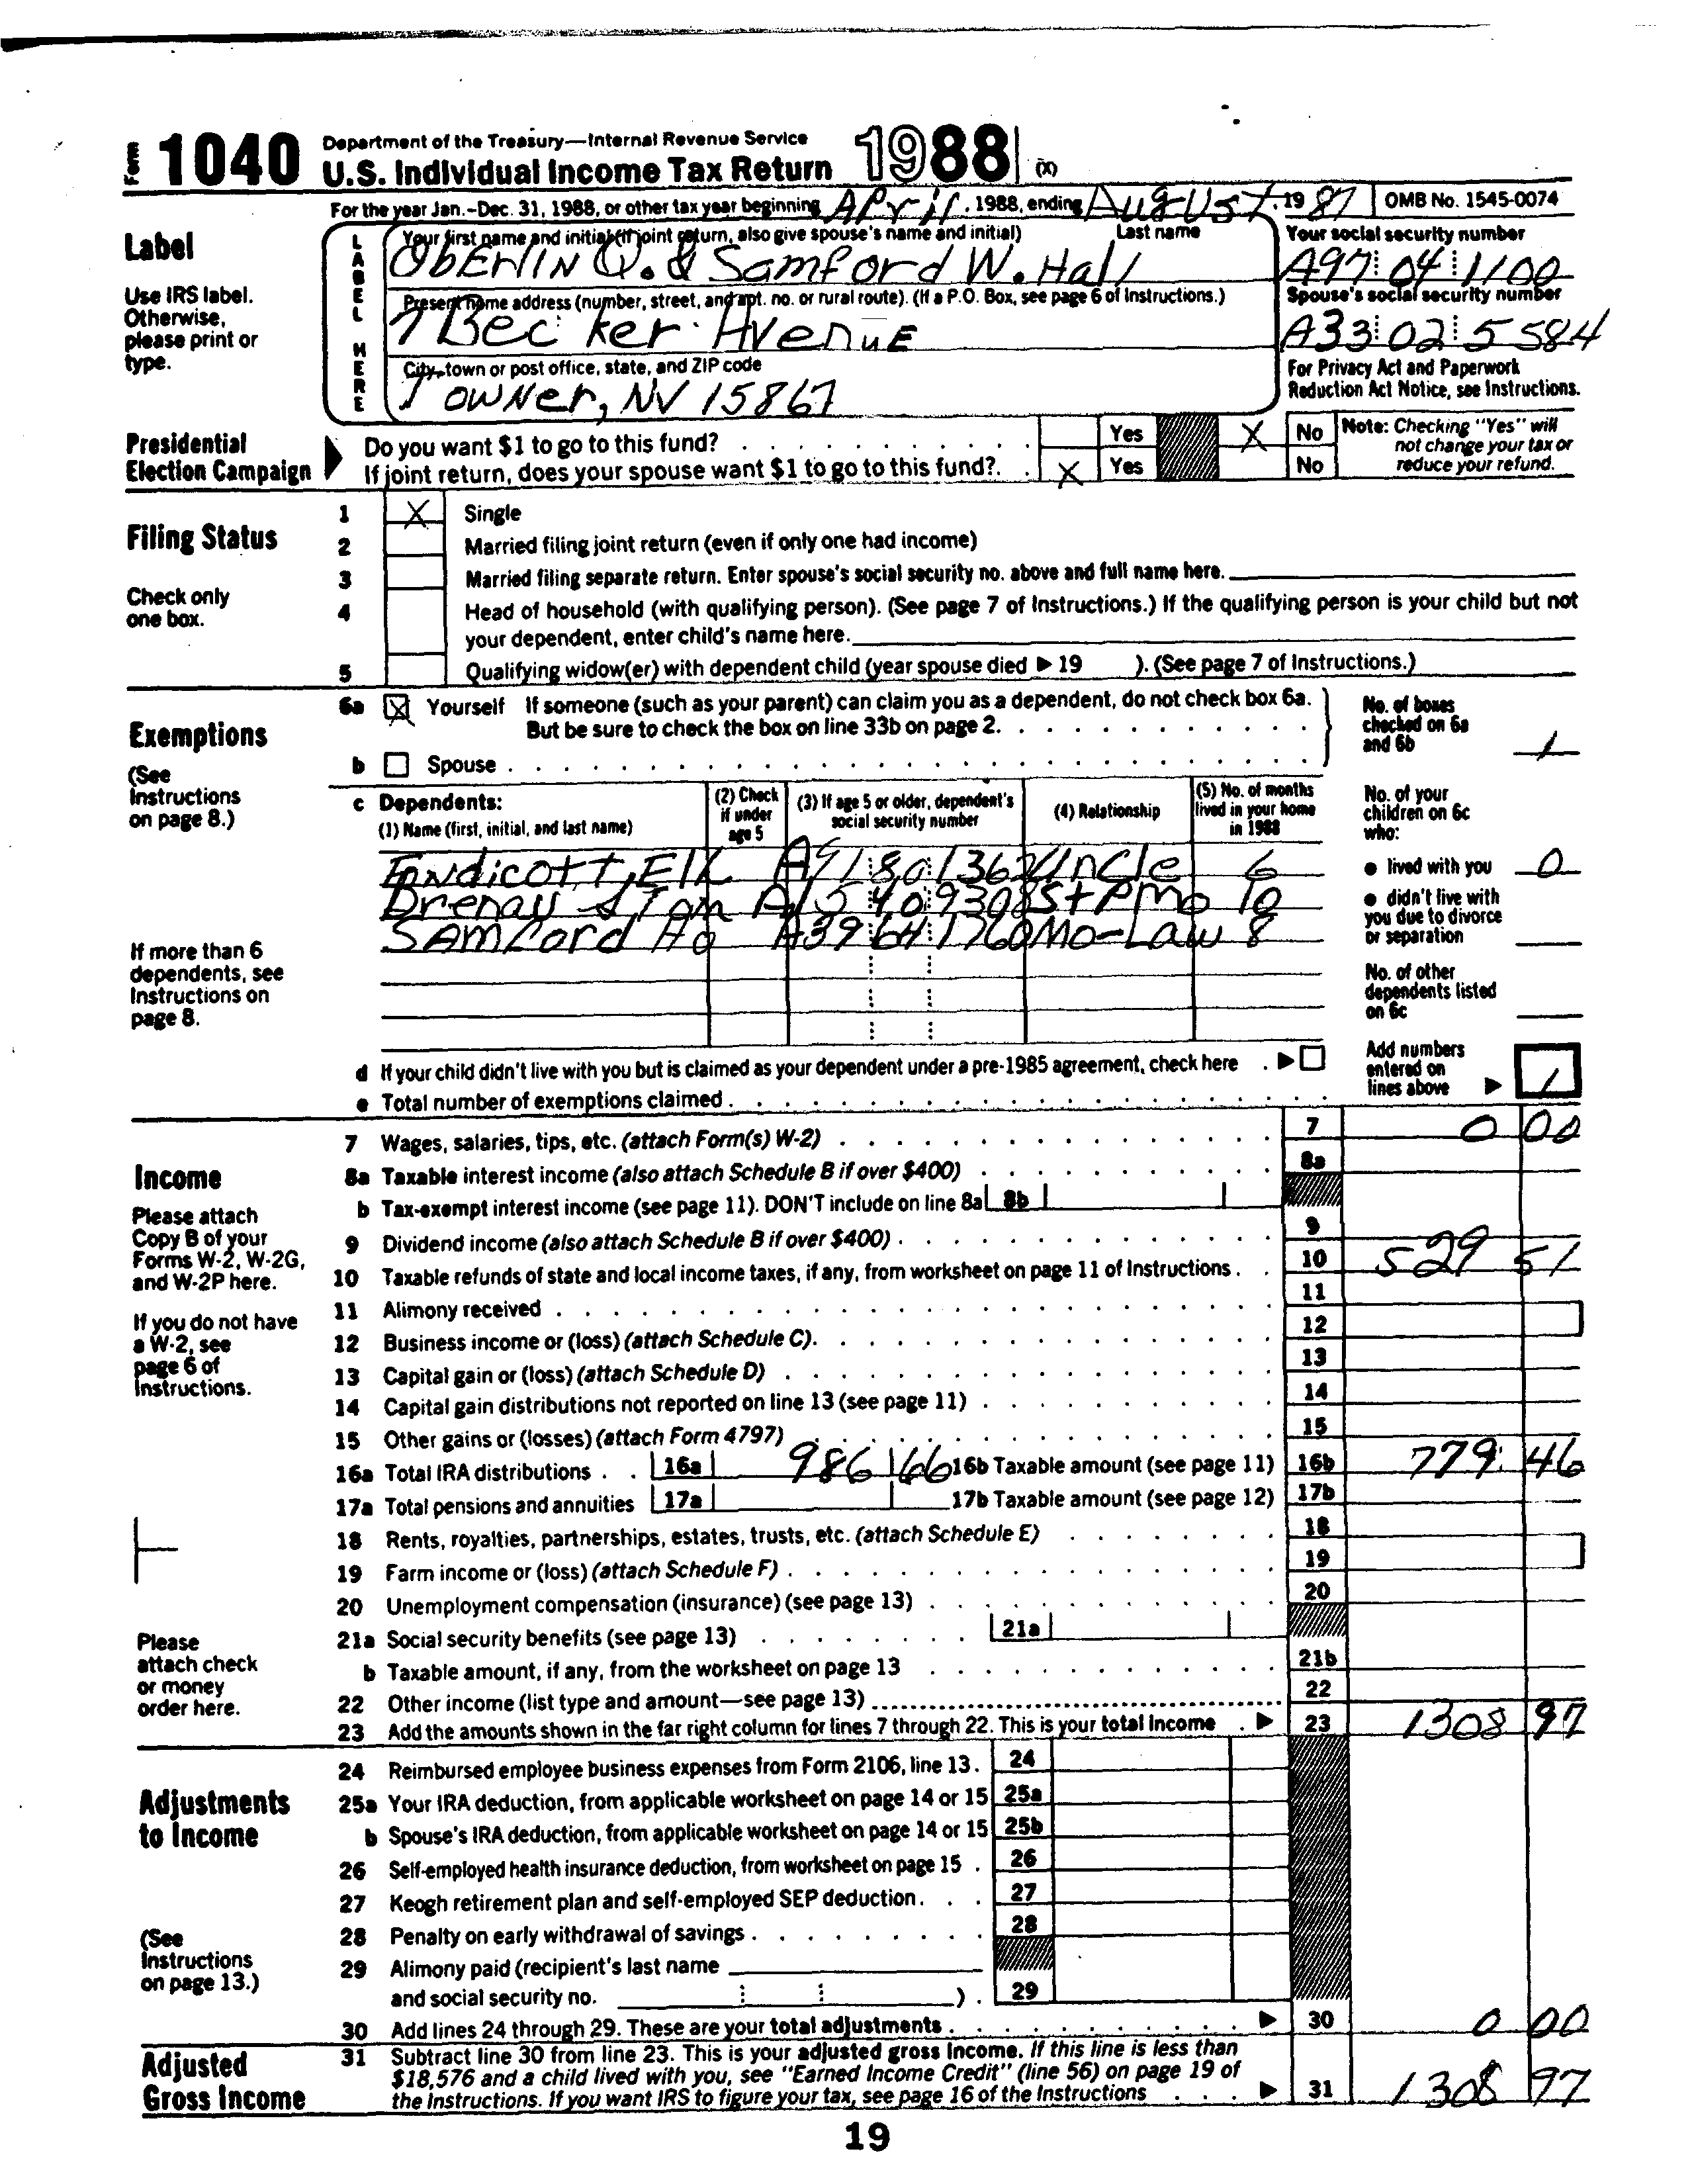 Form 1040 Department of the Treasury—Internal Revenue Service
U.S. Individual Income Tax Return 1988 (X)
For the year Jan.-Dec. 31, 1988, or other tax year beginning April , 1988, ending August , 19 87 OMB No. 1545-0074
Label
Use IRS label. Otherwise, please print or type.
LABEL HERE
Your first name and initial (if joint return, also give spouse's name and initial) Last name
OBERLIN Q. & Samford W. Hall
Your social security number
A97 04 1100
Present home address (number, street, and apt. no. or rural route). (If a P.O. Box, see page 6 of Instructions.)
7 Becker Avenue
Spouse's social security number
A33 02 5584
City, town or post office, state, and ZIP code
Towner, NV 15867
For Privacy Act and Paperwork Reduction Act Notice, see Instructions.
Presidential Election Campaign
Do you want $1 to go to this fund? Yes X No
If joint return, does your spouse want $1 to go to this fund? X Yes No
Note: Checking "Yes" will not change your tax or reduce your refund.
Filing Status
Check only one box.
1 X Single
2 Married filing joint return (even if only one had income)
3 Married filing separate return. Enter spouse's social security no. above and full name here.
4 Head of household (with qualifying person). (See page 7 of Instructions.) If the qualifying person is your child but not
your dependent, enter child's name here.
5 Qualifying widow(er) with dependent child (year spouse died ▶ 19 ). (See page 7 of Instructions.)
Exemptions
(See Instructions on page 8.)
6a X Yourself If someone (such as your parent) can claim you as a dependent, do not check box 6a.
But be sure to check the box on line 33b on page 2.
b Spouse
No. of boxes checked on 6a and 6b 1
c Dependents:
(1) Name (first, initial, and last name)
(2) Check if under age 5
(3) If age 5 or older, dependent's social security number
(4) Relationship
(5) No. of months lived in your home in 1988
Endicott, Elk A91 80 1362 Uncle 6
A15 40 9308 StPmo 10
Samford A39 64 1760 Mo-Law 8
No. of your children on 6c who:
● lived with you 0
● didn't live with you due to divorce or separation
No. of other dependents listed on 6c
If more than 6 dependents, see Instructions on page 8.
d If your child didn't live with you but is claimed as your dependent under a pre-1985 agreement, check here ▶
e Total number of exemptions claimed
Add numbers entered on lines above ▶ 1
Income
Please attach Copy B of your Forms W-2, W-2G, and W-2P here.
If you do not have a W-2, see page 6 of Instructions.
Please attach check or money order here.
7 Wages, salaries, tips, etc. (attach Form(s) W-2) 7 0 00
8a Taxable interest income (also attach Schedule B if over $400) 8a
b Tax-exempt interest income (see page 11). DON'T include on line 8a 8b
9 Dividend income (also attach Schedule B if over $400) 9
10 Taxable refunds of state and local income taxes, if any, from worksheet on page 11 of Instructions 10 529 51
11 Alimony received 11
12 Business income or (loss) (attach Schedule C) 12
13 Capital gain or (loss) (attach Schedule D) 13
14 Capital gain distributions not reported on line 13 (see page 11) 14
15 Other gains or (losses) (attach Form 4797) 15
16a Total IRA distributions 16a 986 66 16b Taxable amount (see page 11) 16b 779 46
17a Total pensions and annuities 17a 17b Taxable amount (see page 12) 17b
18 Rents, royalties, partnerships, estates, trusts, etc. (attach Schedule E) 18
19 Farm income or (loss) (attach Schedule F) 19
20 Unemployment compensation (insurance) (see page 13) 20
21a Social security benefits (see page 13) 21a
b Taxable amount, if any, from the worksheet on page 13 21b
22 Other income (list type and amount—see page 13) 22
23 Add the amounts shown in the far right column for lines 7 through 22. This is your total income ▶ 23 1308 97
Adjustments to Income
(See Instructions on page 13.)
24 Reimbursed employee business expenses from Form 2106, line 13. 24
25a Your IRA deduction, from applicable worksheet on page 14 or 15 25a
b Spouse's IRA deduction, from applicable worksheet on page 14 or 15 25b
26 Self-employed health insurance deduction, from worksheet on page 15 26
27 Keogh retirement plan and self-employed SEP deduction 27
28 Penalty on early withdrawal of savings 28
29 Alimony paid (recipient's last name
and social security no. ) 29
30 Add lines 24 through 29. These are your total adjustments ▶ 30 0 00
Adjusted Gross Income
31 Subtract line 30 from line 23. This is your adjusted gross income. If this line is less than
$18,576 and a child lived with you, see "Earned Income Credit" (line 56) on page 19 of
the Instructions. If you want IRS to figure your tax, see page 16 of the Instructions ▶ 31 1308 97
19